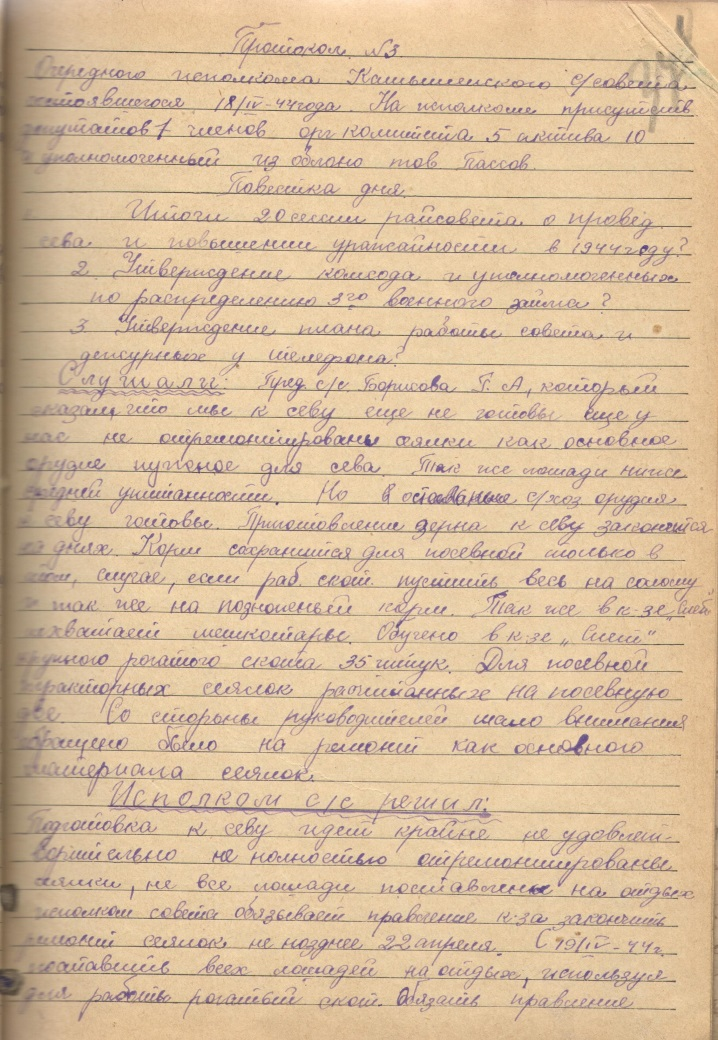 Протокол №3
Очередного исполкома Камышенского с/совета
состоявшегося 18/IV-44 года. На исполкоме присутств.
депутатов 7 членов орг комитета 5 актива 10
и уполномоченный из облоно тов Пассов.
Повестка дня.
Итоги 20 сессии райсовета о провед.
сева и повышении урожайности в 1944 году?
2. Утверждение комсода и уполномоченных
по распределению 3го военного займа?
3. Утверждение плана работы совета и
дежурных у телефона?
Слушали: Пред с/с Борисова Г. А, который
сказал, что мы к севу еще не готовы еще у
нас не отремонтированы сеялки как основное
орудие нужное для сева. Так же лошади ниже
средней упитанности. Но в остальные с/хоз орудия
к севу готовы. Приготовление зерна к севу закончится
на днях. Корм сохранится для посевной только в
том, случае, если раб. скот пустить весь на солому
и так же на подножный корм. Так же в к-зе
не хватает мешкотары. Обучено в к-зе
крупного рогатого скота 35 штук. Для посевной
тракторных сеялок расчитанных на посевную
две. Со стороны руководителей мало внимания
обращено было на ремонт как основного
материала сеялок.
Исполком с/с решил:
Подготовка к севу идет крайне не удовлет-
ворительно не полностью отремонтированы
сеялки, не все лошади поставлены на отдых
исполком совета обязывает правление к-за закончить
ремонт сеялок не позднее 22 апреля. С 19/IV-44г.
поставить всех лошадей на отдых, используя
для работы рогатый скот. Обязать правление